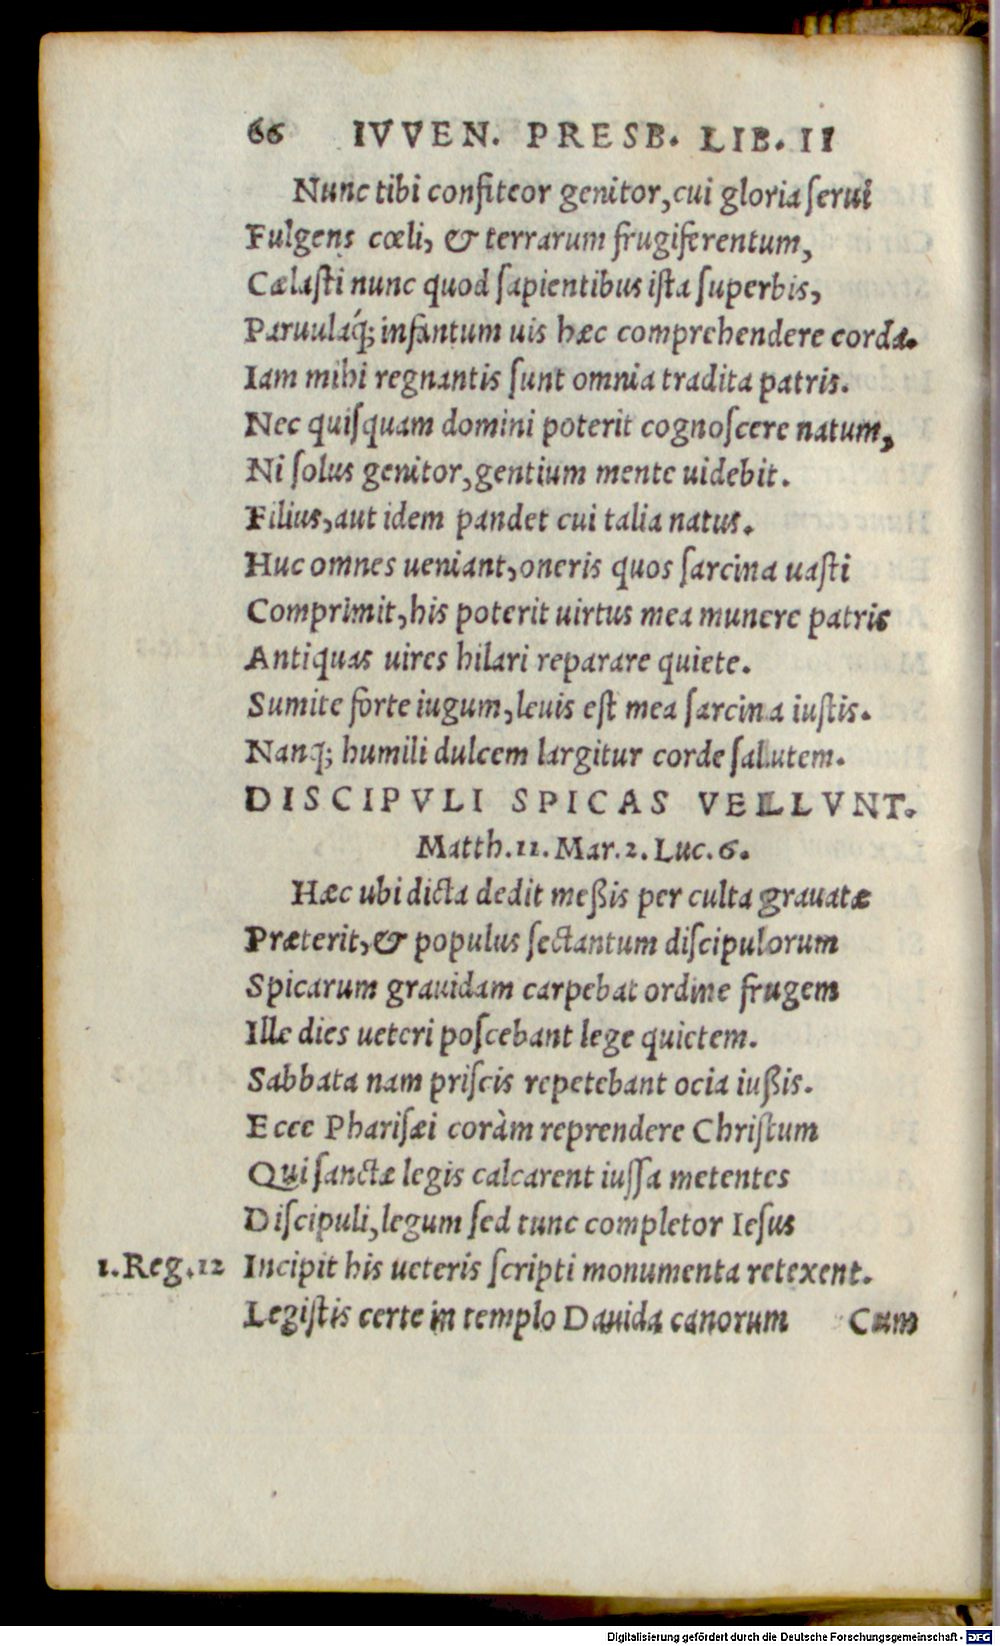 66 IVVEN. PRESB. LIB. II
Nunc tibi confiteor genitor, cui gloria seruit
Fulgens cœli, & terrarum frugiferentum,
Cælasti nunc quod sapientibus ista superbis,
Paruuláq; infantum uis hæc comprehendere corda.
Iam mihi regnantis sunt omnia tradita patris.
Nec quisquam domini poterit cognoscere natum,
Ni solus genitor, gentium mente uidebit.
Filius, aut idem pandet cui talia natus.
Huc omnes ueniant, oneris quos sarcina uasti
Comprimit, his poterit uirtus mea munere patris
Antiquas uires hilari reparare quiete.
Sumite forte iugum, leuis est mea sarcina iustis.
Nanq; humili dulcem largitur corde salutem.
DISCIPVLI SPICAS VELLVNT.
Matth.11.Mar.2.Luc.6.
Hæc ubi dicta dedit meßis per culta grauatæ
Præterit, & populus sectantum discipulorum
Spicarum grauidam carpebat ordine frugem
Ille dies ueteri poscebant lege quietem.
Sabbata nam priscis repetebant ocia iußis.
Ecce Pharisæi coràm reprendere Christum
Qui sanctæ legis calcarent iussa metentes
Discipuli, legum sed tunc completor Iesus
1.Reg.12 Incipit his ueteris scripti monumenta retexent.
Legistis certe in templo Dauida canorum Cum
Digitalisierung gefördert durch die Deutsche Forschungsgemeinschaft - DFG